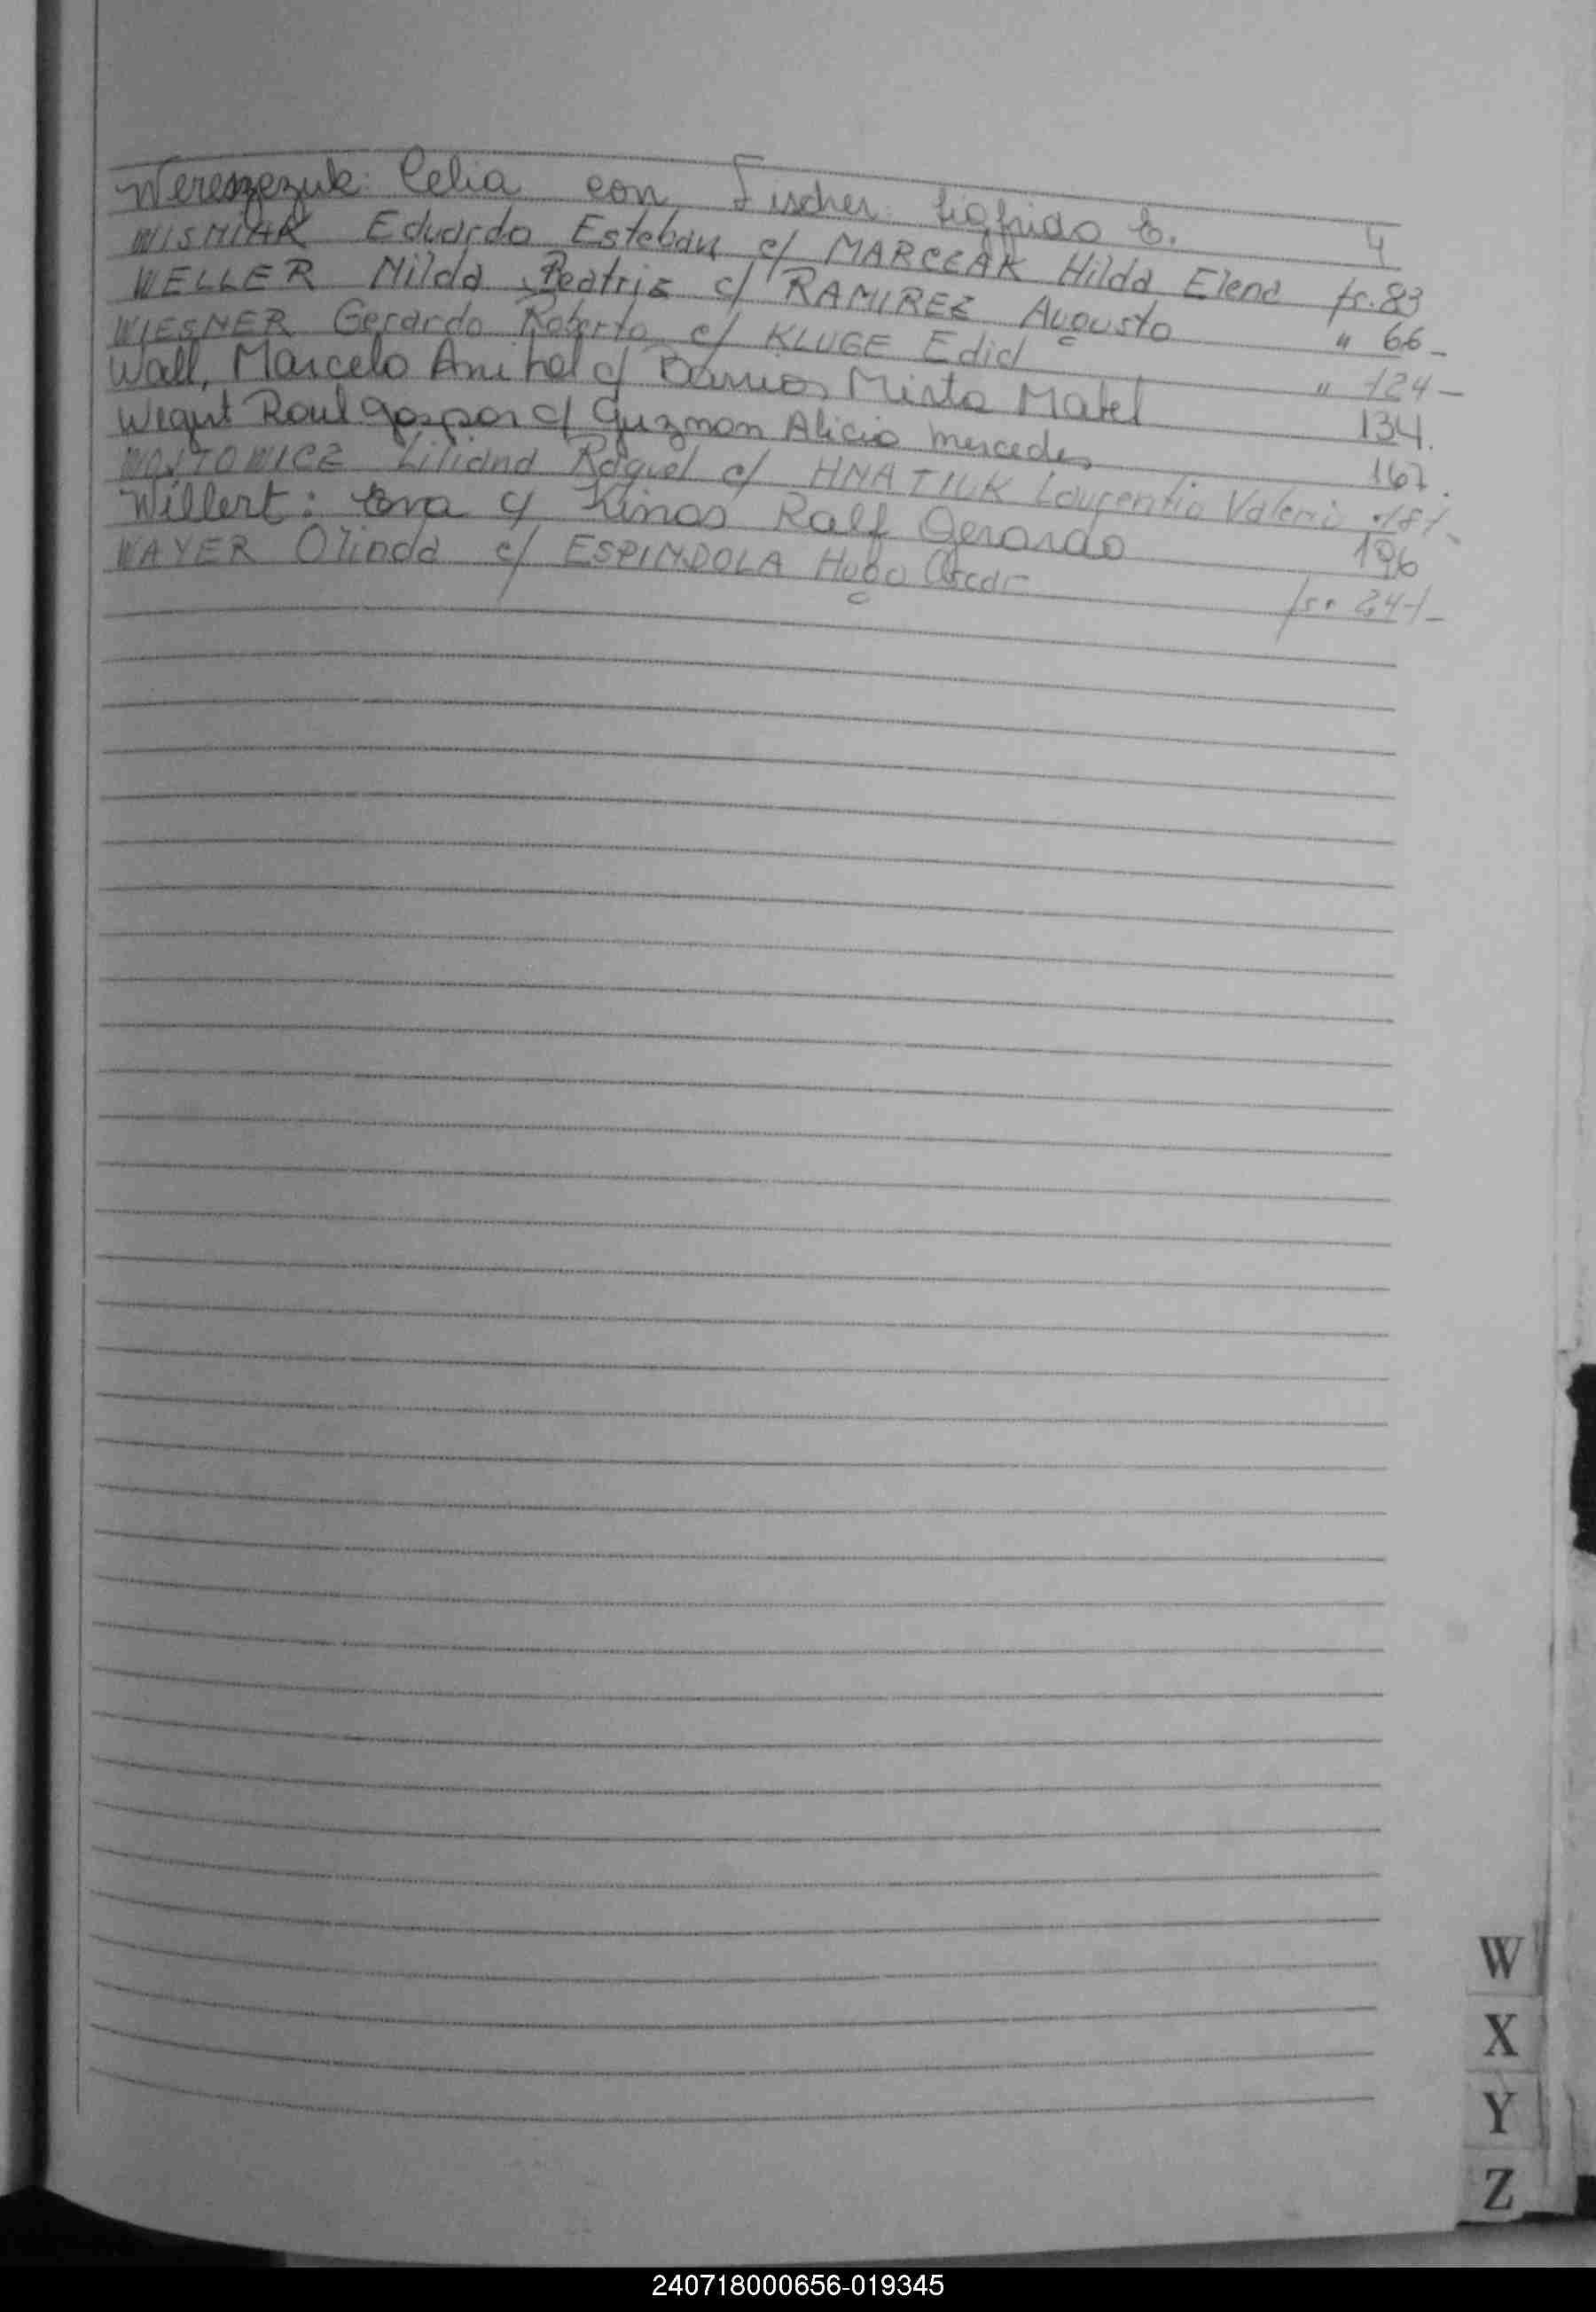 Wereszezuk: Celia con Fischer Sigfrido E. 4
WISNIAK Eduardo Esteban c/ MARCEAK Hilda Elena fs. 83
WELLER Nilda Beatriz c/ RAMIREZ Augusto " 66-
WIESNER Gerardo Roberto c/ KLUGE Edid " 124-
Wall, Marcelo Anibal c/ Barrios Mirta Mabel 134.
Wegert Raul Gaspar c/ Guzman Alicia Mercedes 167.
WOJTOWICZ Liliana Raquel c/ HNATIUK Laurentio Valerio 181-
Willert: Eva c/ Kinas Ralf Gerardo 196
WAYER Olinda c/ ESPINDOLA Hugo Oscar fs. 241-
W
X
Y
Z
240718000656-019345